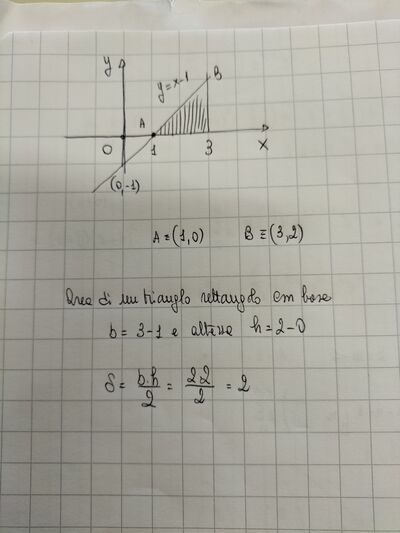 y
B
y=x-1
A
0 1 3 x
(0,-1)
A≡(1,0) B≡(3,2)
Area di un triangolo rettangolo con base
b = 3-1 e altezza h=2-0
S = b·h/2 = 2·2/2 = 2